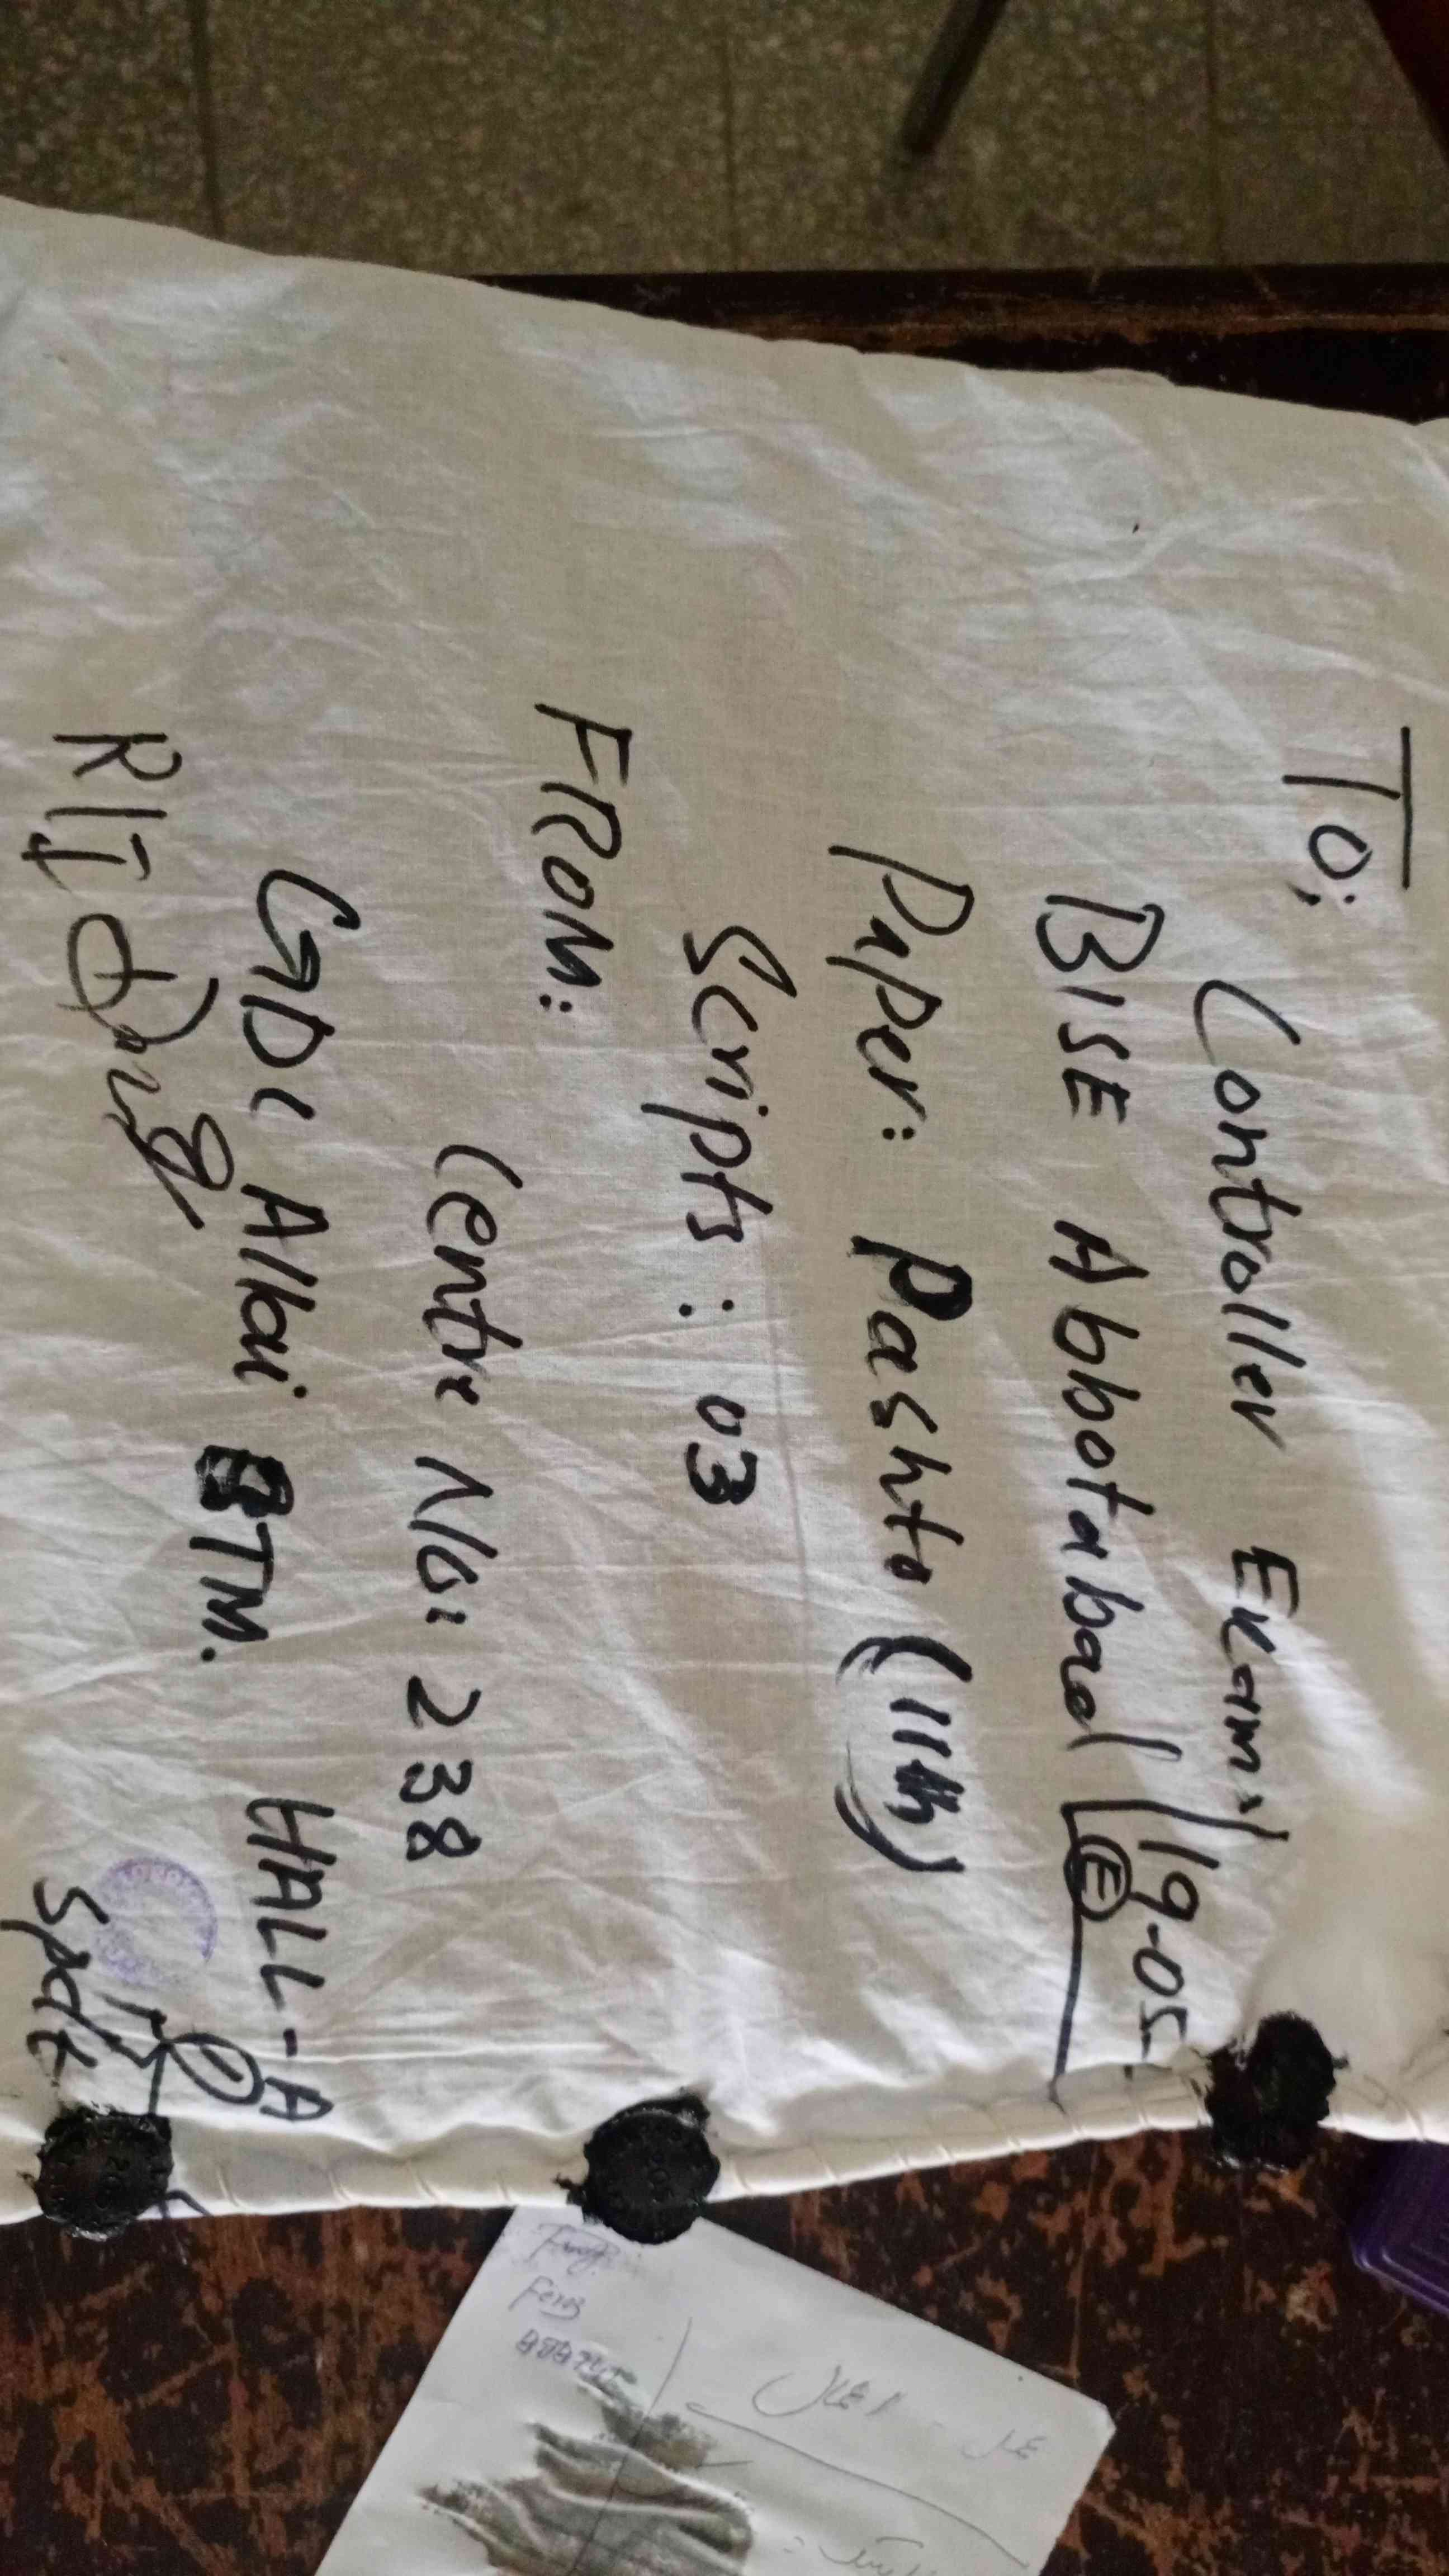 To;
Controller Exam: 19-05
BISE Abbotabad E
Paper: Pashto (11th)
Scripts: 03
FROM:
Centre No: 238
GDC Allai BTM. HALL-A
RI
Spdt